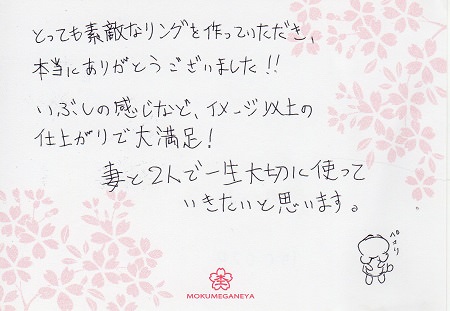 とっても素敵なリングを作っていただき、
本当にありがとうございました!!
いぶしの感じなど、イメージ以上の
仕上がりで大満足!
妻と2人で一生大切に使って
いきたいと思います。
ペコリ
MOKUMEGANEYA